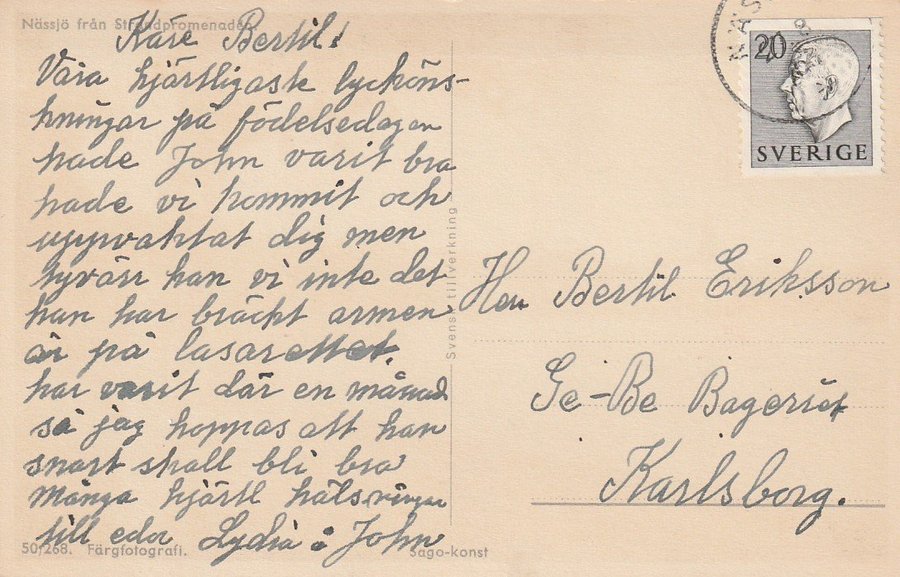 Nässjö från Strandpromenaden.
Käre Bertil!
Våra hjärtligaste lycköns-
kningar på födelsedagen
hade John varit bra
hade vi kommit och
uppvaktat dig men
tyvärr kan vi inte det
han har bräckt armen
är på lasarettet.
har varit där en månad
så jag hoppas att han
snart skall bli bra
Många hjärtl hälsningar
till eder Lydia o John
50/268. Färgfotografi.
Sago-konst
Svensk tillverkning
20
SVERIGE
Herr Bertil Eriksson
Ge-Be Bageriet
Karlsborg.